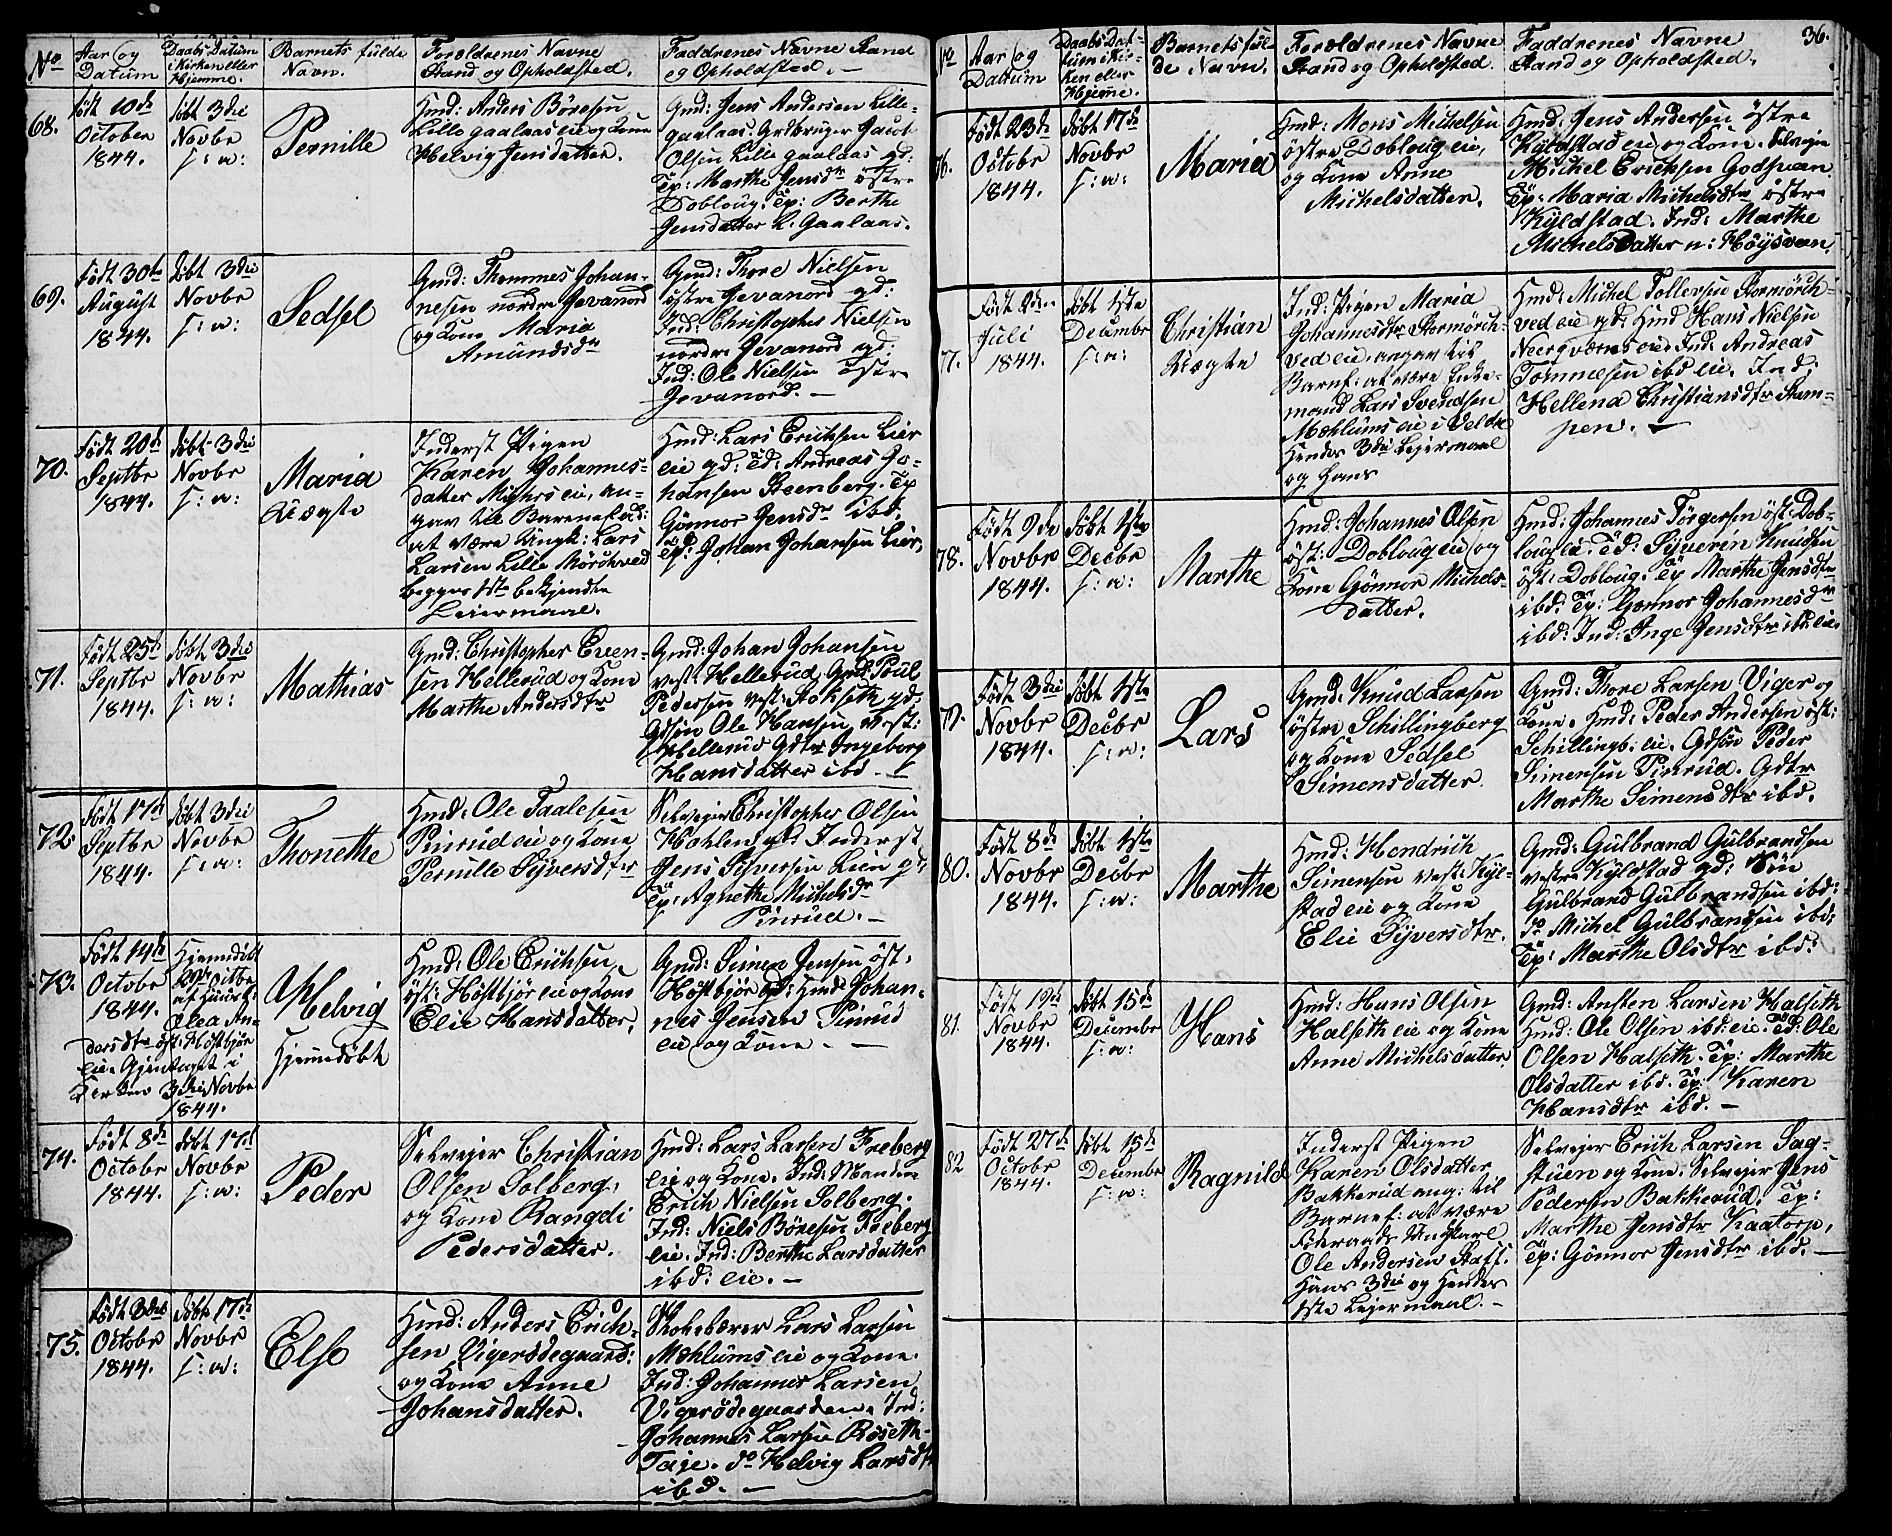 No
Aar og
Datum
Daabs Datum
i Kirken eller
Hjemme.
Barnets fulde
Navn.
Forældrenes Navne
Stand og Opholdsted.
Faddrenes Navne Stand
og Opholdsted. –
68.
født 10de
October
1844.
döbt 3die
Novbr
s: a:
Pernille
Hmd: Anders Böresen
Lille gaalaas eie og Kone
Helvig Jensdatter.
Gmd: Jens Andersen Lille-
gaalaas. Grdbruger Jacob
Olsen Lille gaalaas gd:
Tp: Marthe Jensdr östre
Dobloug. Tp: Berthe
Jensdatter L: Gaalaas.
69.
Født 30te
August
1844.
döbt 3die
Novbr
s: a:
Sedsel
Gmd: Thommes Johan-
nesen nordre Jevanord
og Kone Maria
Amundsdr
Gmd: Thore Nielsen
östre Jevanord gd:
Ind: Christopher Nielsen
nordre Jevanord gd:
Ind: Ole Nielsen östre
Jevanord. –
70.
Født 20de
Septbr
1844.
döbt 3die
Novbr
s: a:
Maria
Uægte
Inderst Pigen
Karen Johannes-
datter eie, an-
gav til Barnefad:
at være Ungk: Lars
Larsen Lille Mörchved
begges 1te bekjendte
Leiermaal.
Hmd: Lars Erichsen Lier
eie gd: Td: Andreas Jo-
hansen Steenberg. Tp
Gönnor Jensdr ibd.
Tp: Johan Johansen Lier.
71.
Født 25de
Septbr
1844.
döbt 3die
Novbr
s: a:
Mathias
Gmd: Christopher Even-
sen Hellerud og Kone
Marthe Andersdtr
Gmd: Johan Johansen
vest: Hellerud, Gmd: Poul
Pedersen vest: gd.
Gdsön Ole Hansen vest:
Hellerud Gdtr Ingeborg
Hansdatter ibd. –
72.
Født 17de
Septbr
1844.
döbt 3die
Novbr
s: a:
Thonethe
Hmd: Ole Taalesen
Pinrud eie og Kone
Pernille Syversdtr
Selveier Christopher Olsen
gd: Inderst
Jens Syversen Lier gd:
Tp: Agnethe Michelsdr
Pinrud. –
73.
Født 14de
Octobr
1844.
Hjemmedöbt
Octbr
af
Olea An-
dersdtr öst: Höstbjör
eie. Gjentaget i
Kirken 3die Novbr
1844.
Helvig
Hjemmedöbt
Hmd: Ole Erichsen
öst: Höstbjör eie og Kone
Elie Hansdatter.
Gmd: Simen Jensen öst:
Höstbjör gd: Hmd: Johan-
nes Jensen Pinrud
eie og Kone. –
74.
Født 8de
Octobr
1844.
döbt 17de
Novbr
s: a:
Peder
Selveier Christian
Olsen Solberg,
og Kone Rangdi
Pedersdatter.
Hmd: Lars Larsen Freberg
eie og Kone. Ind: Manden
Erich Nielsen Solberg.
Ind: Niels Böresen Freberg
eie. Ind: Berthe Larsdatter
ibd: eie. –
75.
Født 3die
Octobr
1844.
döbt 17de
Novbr
s: a:
Else
Hmd: Anders Erich-
sen Vigersödegaard:
og Kone Anne
Johansdatter.
Lars Larsen
Mæhlums eie og Kone.
Ind: Johannes Larsen
Vigersödegaarden. Ind:
Johannes Larsen Röseth
Taje. do Helvig Larsdtr
ibd. –
No
Aar og
Datum
Daabs Dat-
um i Kir-
ken eller
Hjeme.
Barnets ful-
de Navn.
Forældrenes Navne
Stand og Opholdsted.
Faddrenes Navne
Stand og Opholdsted.
36.
76.
Født 23de
Octobr
1844.
döbt 17de
Novbr
s: a:
Maria
Hmd: Mons Michelsen
östre Dobloug eie,
og Kone Anne
Michelsdatter.
Hmd: Jens Andersen östre
Kyldstad eie og Kone. Selveier
Michel Erichsen Godsvan.
Tp: Maria Michelsdtr östre
Kyldstad. Ind: Marthe
Michelsdatter n: Höysveen.
77.
Født 2den
Juli
1844.
döbt 1ste
Decembr
s: a:
Christian
Uægte
Ind: Pigen Maria
Johannesdtr Stormörch-
ved eie, angav til
Barnef: at være Enke-
mand Lars Svendsen
Mæhlums eie i Veldre
Hendes 3die Leiermaal
og Hans
Hmd: Michel Tollevsen Stormörch-
ved eie gd: Hmd Hans Nielsen
eie Ind: Andreas
Tommesen ibd eie. Ind:
Hellena Christiansdtr Stam-
pen. –
78.
Født 9de
Novbr
1844.
döbt 1ste
Decbr
s: a:
Marthe
Hmd: Johannes Olsen
öst: Dobloug eie og
Kone Gönnor Michels-
datter.
Hmd: Johannes Törgersen öst: Dob-
loug eie. Td: Syveren Knudsen
öst: Dobloug. Tp Marthe Jensdtr
ibd: Tp: Gönnor Johannesdr
ibd: Ind: Inge Jensdtr ibd: eie.
79.
Født 3die
Novbr
1844.
döbt 1ste
Decbr
s: a:
Lars
Gmd: Knud Larsen
östre Schillingberg
og Kone Sedsel
Simensdatter.
Gmd: Thore Larsen Viger og
Kone. Hmd: Peder Andersen öst:
Schillingb: eie. Gdsön Peder
Simensen Pinrud. Gdtr
Marthe Simensdtr ibd.
80.
Født 8de
Novbr
1844.
döbt 1ste
Decbr
s: a:
Marthe
Hmd: Hendrich
Simensen vest: Kyl-
stad eie og Kone
Elie Syversdtr.
Gmd: Gulbrand Gulbrandsen
vestre Kyldstad gd: Sön
Gulbrand Gulbrandsen ibd:
do Michel Gulbrandsen ibd:
Tp: Marthe Olsdtr ibd:
81.
Født 19de
Novbr
1844.
döbt 15de
Decembr
s: a:
Hans
Hmd: Hans Olsen
Halseth eie og Kone
Anne Michelsdatter
Gmd: Ansten Larsen Halseth
Hmd: Ole Olsen ibd: eie. Td: Ole
Olsen Halseth. Tp: Marthe
Olsdatter ibd. Tp: Karen
Hansdtr ibd. –
82
Født 27de
Octobr
1844.
döbt 15de
Decembr
s: a:
Ragnild
Inderst Pigen
Karen Olsdatter
Bakkerud ang: til
Barnef: at være
Föderaads Ungkarl
Ole Andersen Staff.
Hans 3die og Hendes
1ste Leiermaal. –
Selveier Erich Larsen Sag-
stuen og Kone. Selveier Jens
Pedersen Bakkerud. Tp:
Marthe Jensdtr Kaatorp,
Tp: Gönnor Jensdtr ibd. –